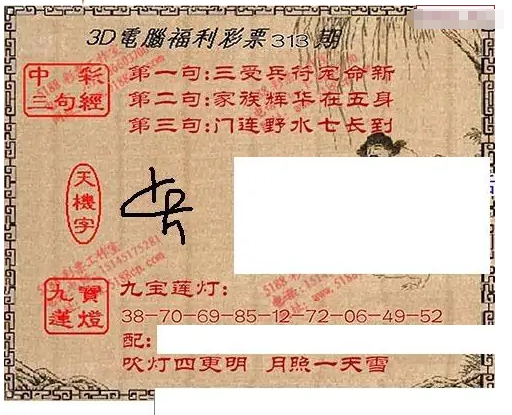 3D電腦福利彩票313期
中彩
三句經
第一句:三受兵符宠命新
第二句:家族辉华在五身
第三句:门连野水七长到
天機字
九寶蓮燈
九宝莲灯:
38-70-69-85-12-72-06-49-52
配:
吹灯四更明 月照一天雪